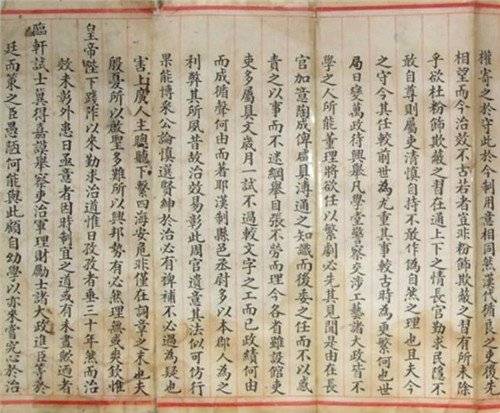 權寄之於守此於令制並意相同然漢代循良之吏後先
相望而今治效不古若者豈非粉飾欺蔽之習有所未除
乎欲杜粉飾欺蔽之習在通上下之情長官勤求民隱不
敢自尊則屬吏清慎自持不敢作偽自然之理也且夫今
之守令其任較前世為尤重其事較古時為更繁何也世
局日變萬政待興舉凡學堂警察交涉工藝諸大政皆不
學之人所能董理將欲任以繁劇必先其見聞是由在長
官加意陶成俾屬員溥通之知識而後委之任而不以惑
責之以事而不迷綱舉自張不勞而理今各省雖設館課
吏多屬具文歲月一試不過較文字之工而已政績何由
而成循聲何由而著耶漢制縣邑丞尉多以本郡人為之
利弊其所夙昔故治效易彰此周官遺意其法似可仿行
果能博采公論慎選賢紳於治必有裨補不必過為疑也
害上廣人主聰聽下繫四海安危非僅在詞章之末也夫
殷憂所以啟聖多難所以興邦勢有必然理無或爽欽惟
皇帝陛下踐阼以來勤求治道惟日孜孜者垂三十年然而治
效未彰外患日亟意者因時制宜之道或有未盡歟邇者
臨軒試士冀得嘉謨舉察吏治軍理財勵士諸大政進臣等於
廷而策之臣愚陋何能與此顧自幼學以亦來嘗究心於治